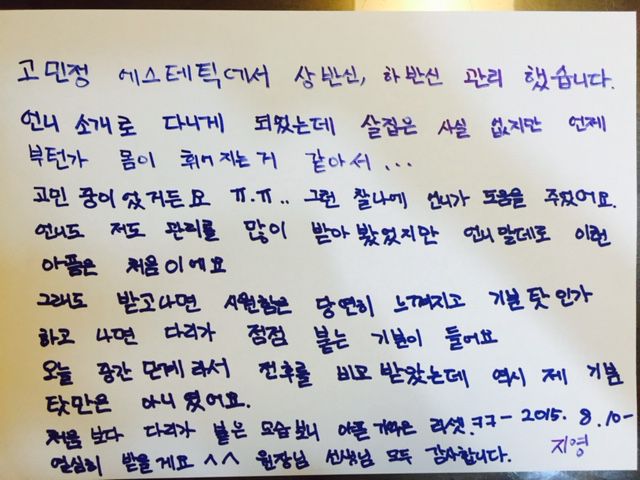 고민정 에스테틱에서 상반신, 하반신 관리 했습니다.
언니 소개로 다니게 되었는데 살집은 사실 없지만 언제
부턴가 몸이 휘어지는거 같아서 ...
고민 중이었거든요 ㅠ.ㅠ.. 그런 찰나에 언니가 도움을 주었어요.
언니도 저도 관리를 많이 받아 봤었지만 언니말데로 이런
아픔은 처음이에요
그래도 받고나면 시원함은 당연히 느껴지고 기분 탓 인가
하고 나면 다리가 점점 붙는 기분이 들어요
오늘 중간 단계라서 전후를 비교 받았는데 역시 제 기분
탓만은 아니였어요.
처음 보다 다리가 붙은 모습 보니 아픈 기억은 리셋.ㅋㅋ- 2015. 8. 10-
열심히 받을게요 ^^ 원장님 선생님 모두 감사합니다. 지영